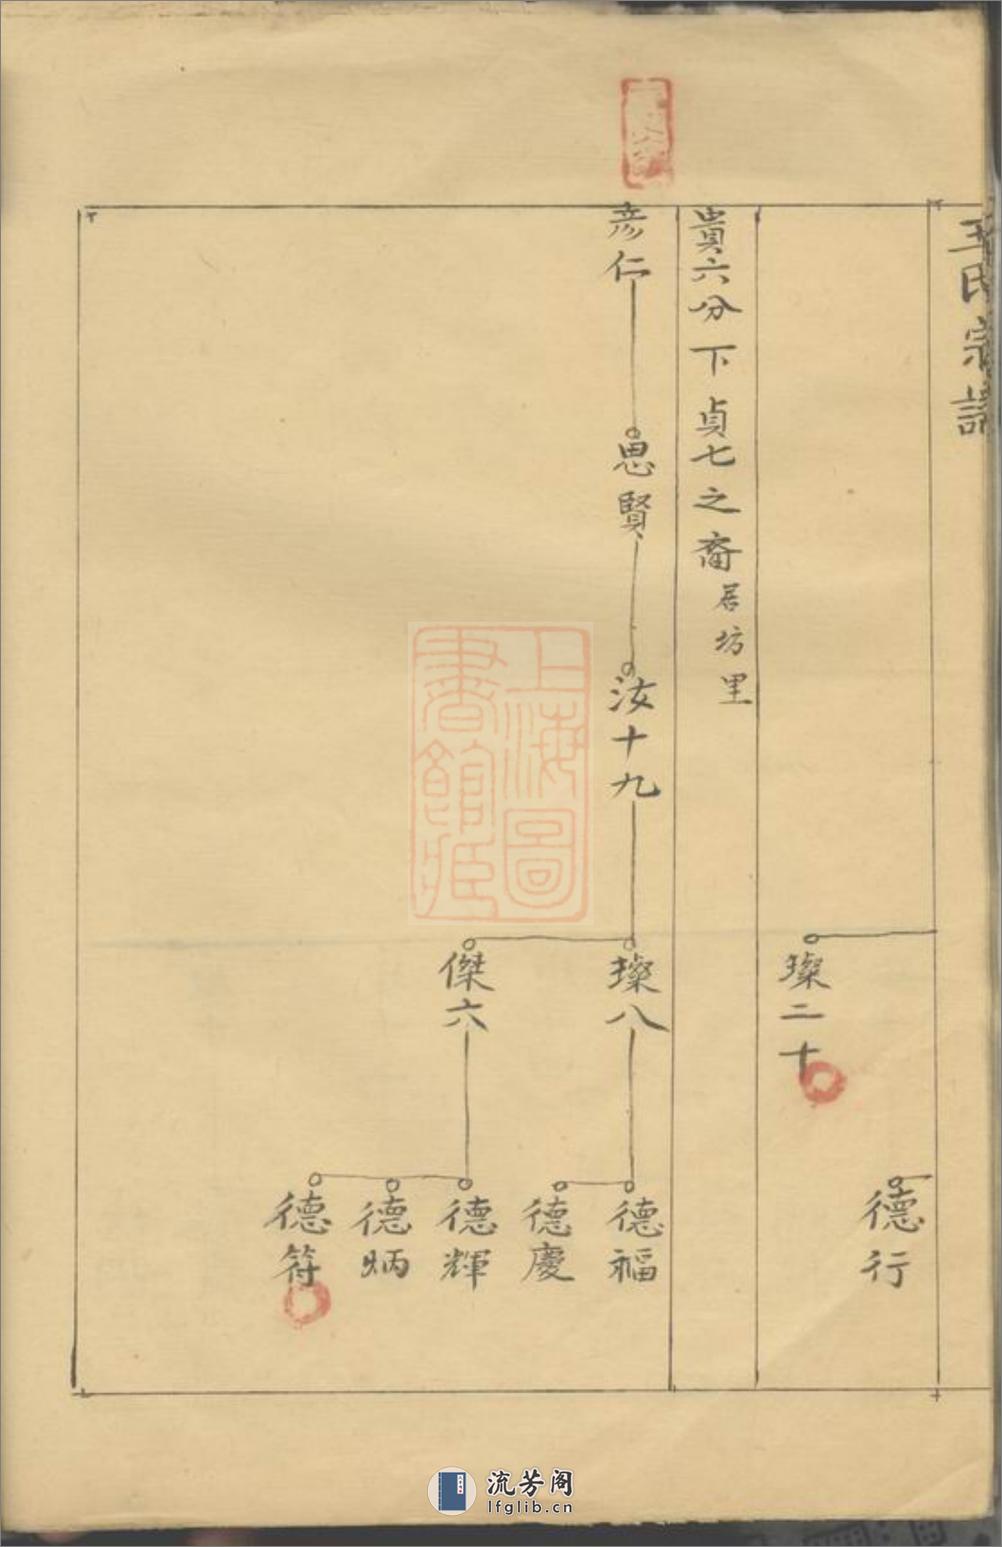 王氏宗譜
璨二十
德行
貴六分下貞七之裔居坊里
彦仁
思賢
汝十九
璨八
傑六
德福
德慶
德輝
德炳
德符
上海圖書館藏
流芳阁
lfglib.cn